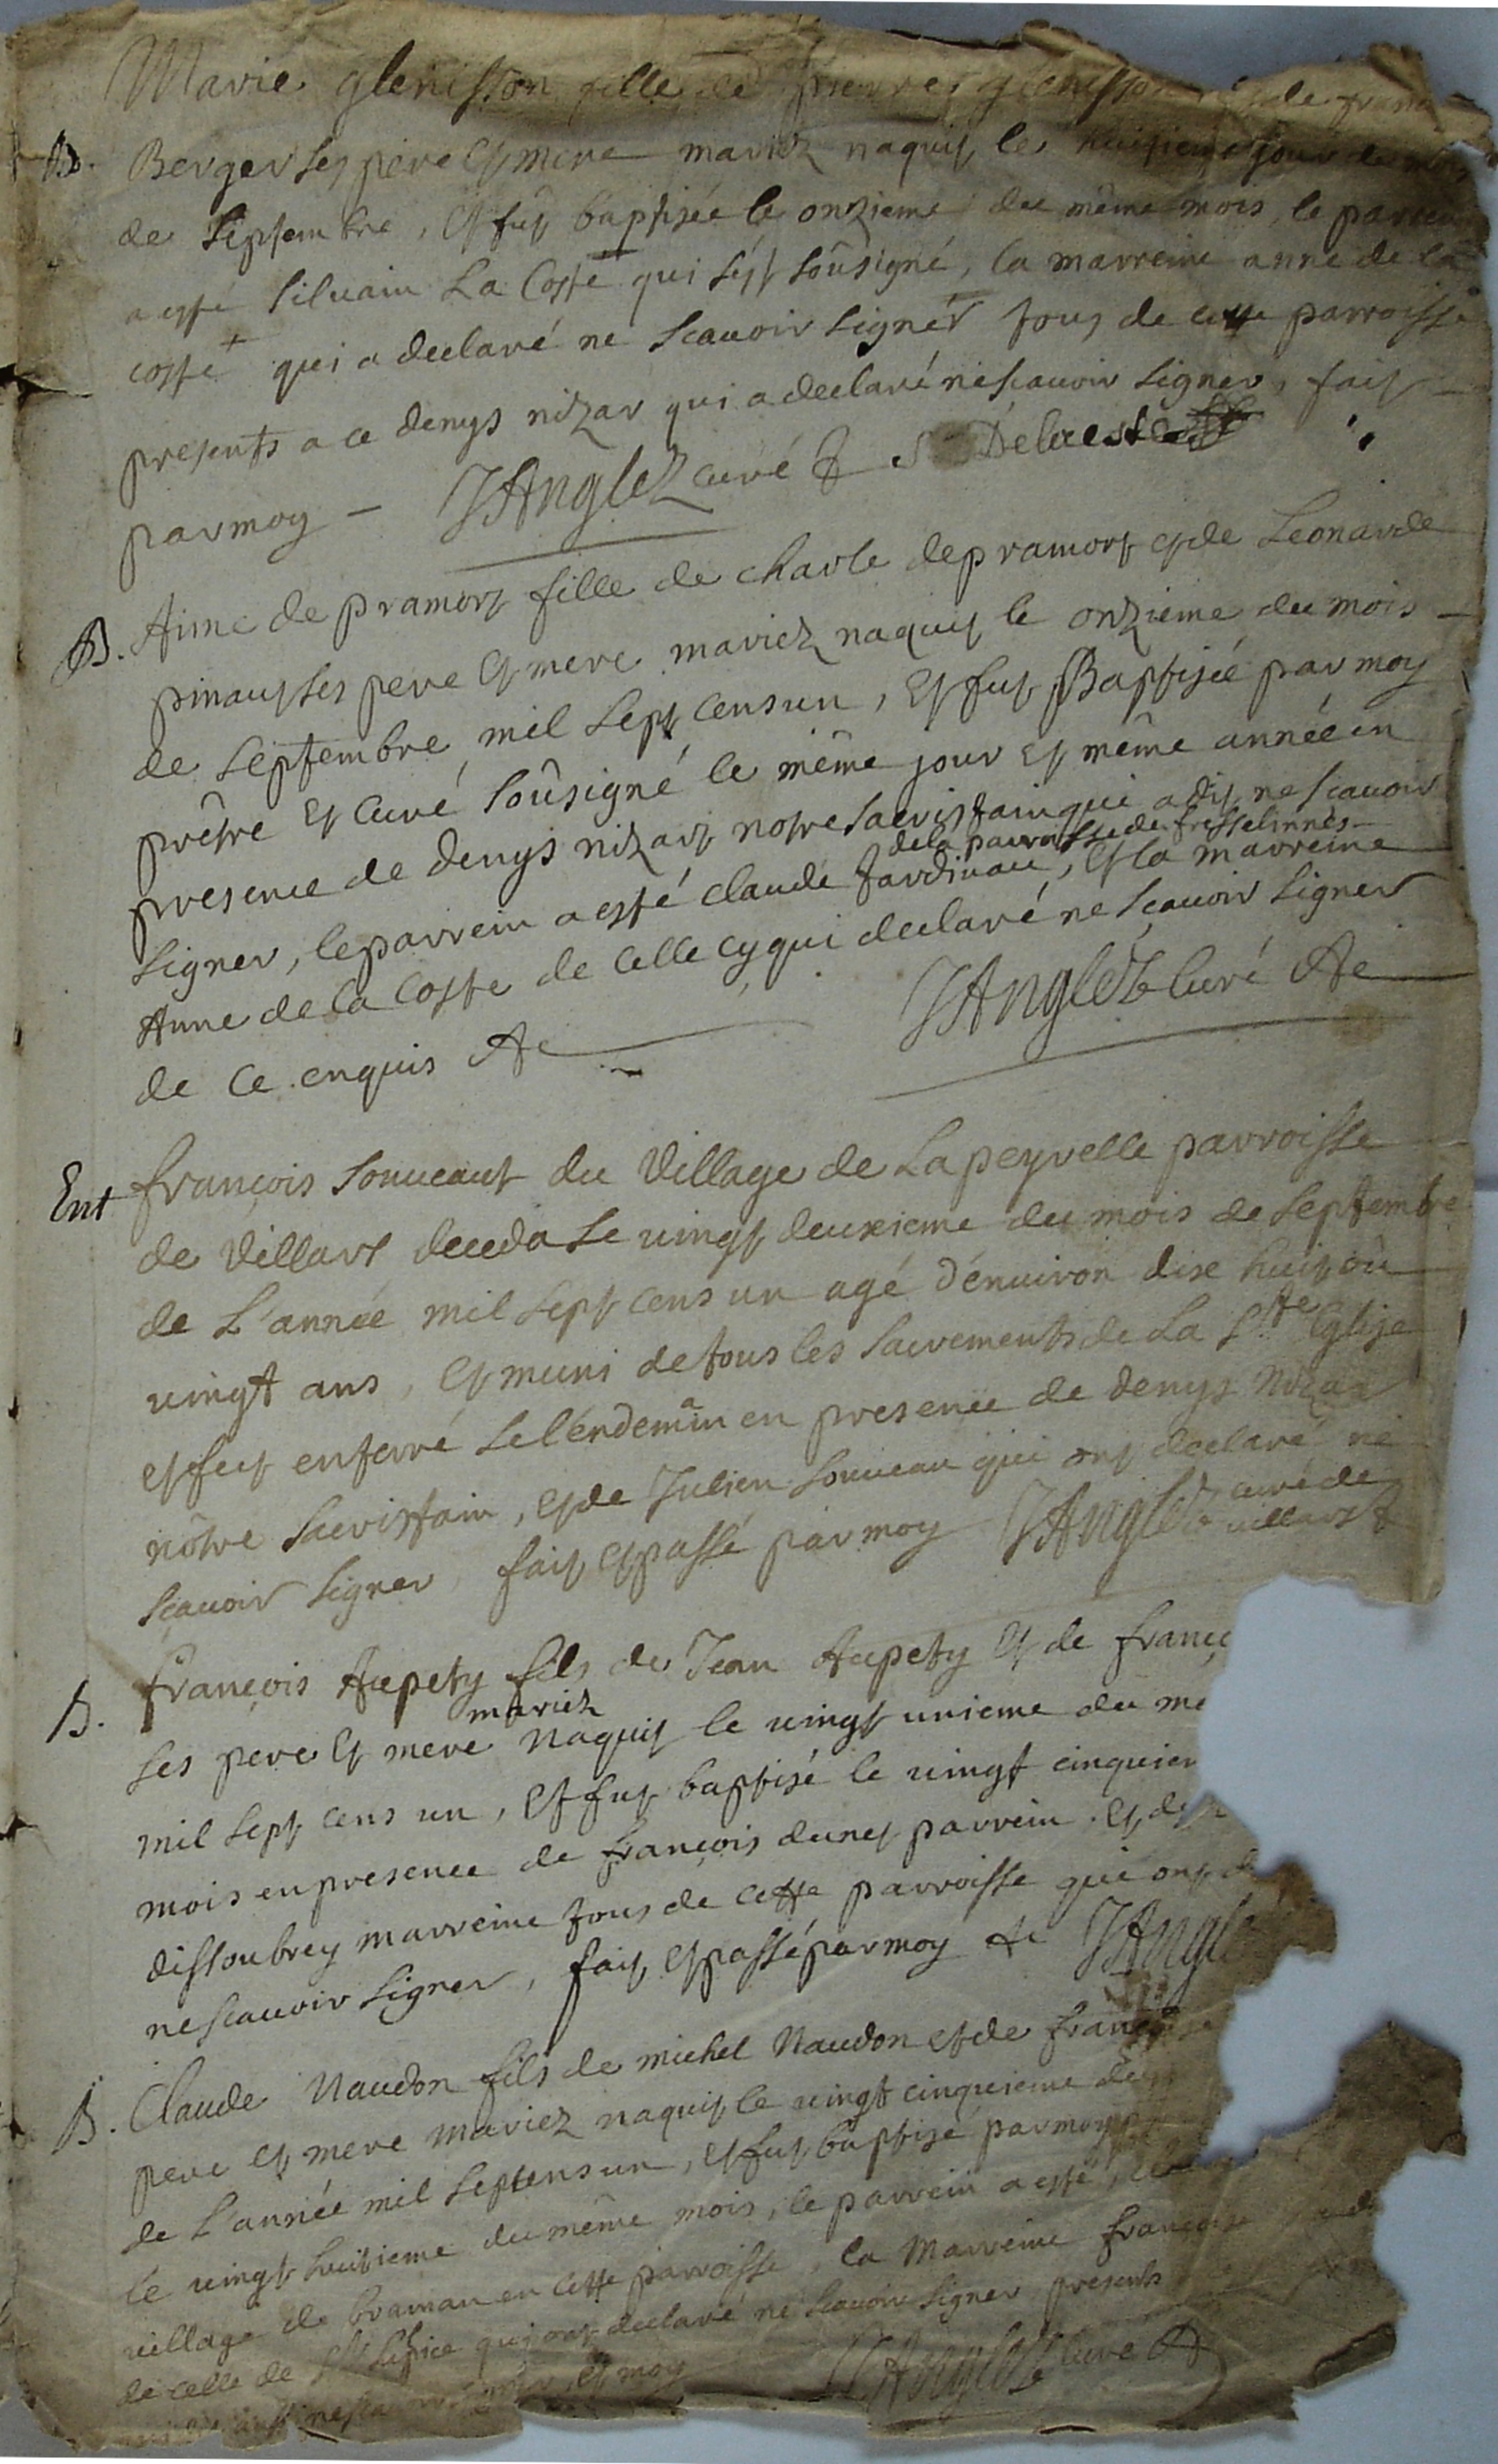 Marie glenisson fille de pierre glenisson et de franc
B. Berger ses pere et mere mariez naquit le huitieme jour du mois
de septembre, et fut baptisée le onzieme du même mois, le parrein
a esté siluain La Coste qui s'est soûsigné, la marreine anne de la
coste qui a declaré ne scauoir signer tous de cette parroisse
presents a ce denys nizar qui a declaré ne scauoir signer, fait
par moy - JAnglez curé & S Delacoste
B. Anne de pramort fille de charle de pramort et de Leonarde
pinaut ses pere et mere mariez naquit le onzieme du mois
de septembre mil sept cens un, et fut Baptisée par moy
prêtre et curé soûsigné le même jour et même année en
presence de denys nizart nostre sacristain qui a dit ne scauoir
de la parroisse de fresselinnes
signer, le parrein a esté claude Jardinau, et la marreine
Anne de la Coste de celle cy qui declaré ne scauoir signer
de ce enquis &c JAnglez curé &c
Ent françois souueaut du village de Lapeyrelle parroisse
de villart deceda le vingt deuxieme du mois de septembre
de L'année mil sept cens un agé d'enuiron dixe huit ou
vingt ans, et muni de tous les sacrements de La Ste Eglise
et fut enterré le lendemain en presence de denys nizar
nôtre sacristain, et de Julien souueau qui ont declaré ne
scauoir signer fait et passé par moy JAnglez curé de
villart &
B. françois Aupety fils de Jean Aupety et de franç
mariez
ses pere et mere naquit le vingt unieme du mê
mil sept cens un, et fut baptisé le vingt cinquiem
mois en presence de françois dunet parrein et de
dissoubrey marreine tous de cette parroisse qui ont d
ne scauoir signer, fait et passé par moy &c JAngl
B. Claude Naudon fils de michel Naudon et de françoise
pere et mere mariez naquit le vingt cinquieme du
de L'année mil sept cens un, et fut baptisé par moy
le vingt huitieme du même mois, le parrein a esté
village de braman en cette parroisse, la Marreine françoise
de celle de qui ont declaré ne scauoir signer presents
et moy JAnglez curé &